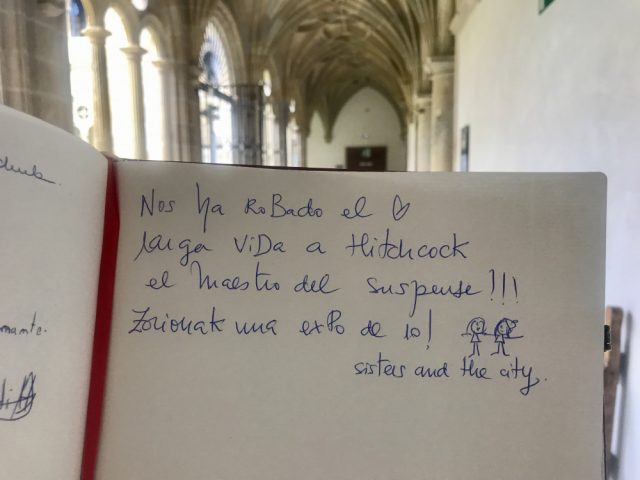 Nos ha RoBado el ♡
larga ViDa a Hitchcock
el Maestro del suspense!!!
Zorionak una exPo de 10!
sisters and the city.